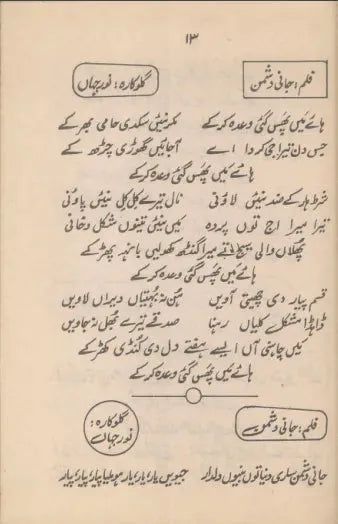 ۱۳
فلم: جانی دشمن
گلوکارہ: نور جہاں
ہائے میں پھس گئی وعدہ کر کے مکر نئیں سکدی حامی بھر کے
جس دن تیرا جی کردا اے آ جائیں گھوڑی چڑھ کے
ہائے میں پھس گئی وعدہ کر کے
شرط ہار کے ضد نئیں لاؤنی نال تیرے کل کل نئیں پاؤنی
تیرا میرا اج توں پردہ کیں نئیں تینوں شکل دخانی
پھلاں والی سیج تے میرا گھنڈ کھولیں بانہہ پھڑ کے
ہائے میں پھس گئی وعدہ کر کے
قسم پیار دی چھیتی آویں ہن نہ بہتیاں دیراں لاویں
ڈاہڈا مشکل کلیاں رہنا صدقے تیرے بھل نہ جاویں
میں چاہنی آں ایسے ہفتے دل دی کنڈی کھڑکے
ہائے میں پھس گئی وعدہ کر کے
فلم: جانی دشمن
گلوکارہ: نور جہاں
جانی دشمن ساری دنیا توں بنیوں دلدار جیویں یار، یار، یار ہو طیا پیار، پیار، پیار